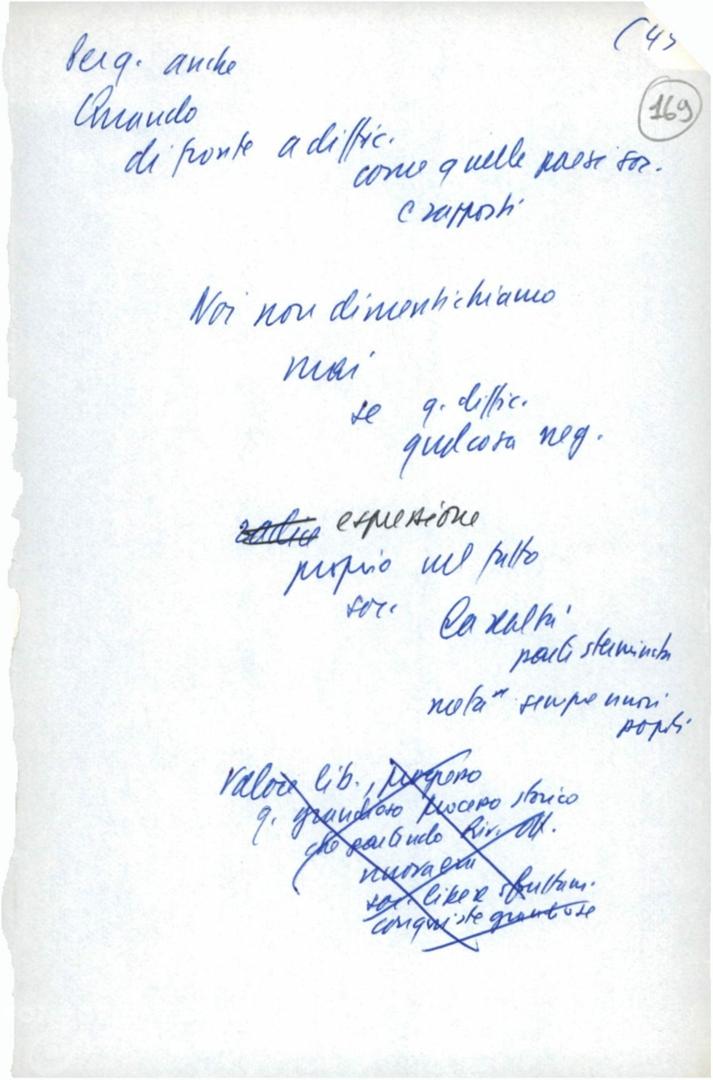 (4)
169
Per q. anche
Quando
di fronte a diffic.
come quelle paesi soc.
e rapporti
Noi non dimentichiamo
mai
se q. diffic.
qualcosa neg.
espressione
proprio nel fatto
soc.
La realtà
parti sterminata
sempre nuovi
popoli
Valore lib., progresso
q. grandioso processo storico
che partendo Riv. Ott.
nuova era
soc. libera sfruttam.
conquiste grandiose